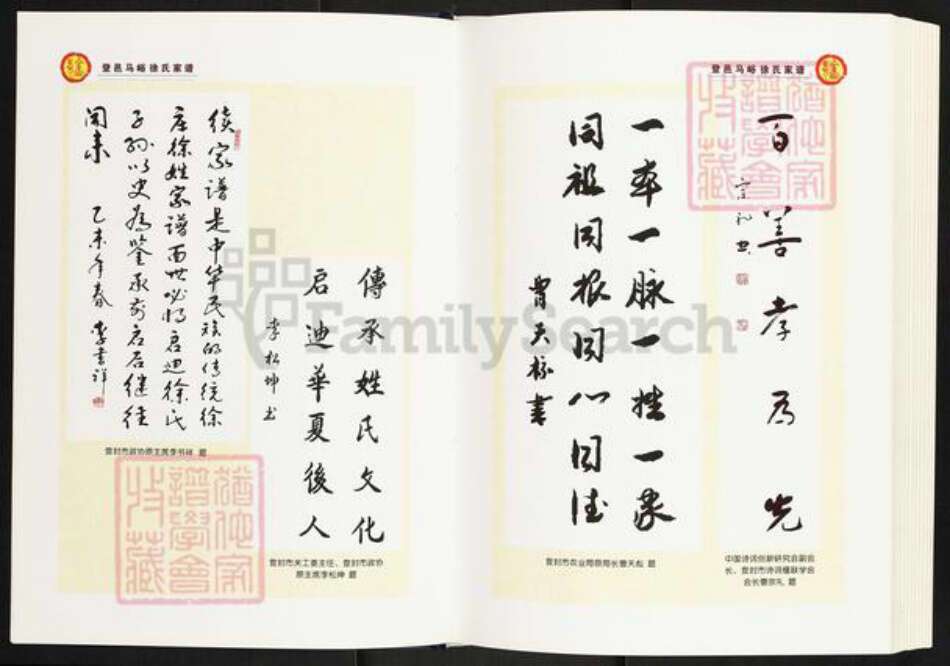 登邑马峪徐氏家谱
百善孝为先
宗礼书
中国诗词创新研究会副会
长、登封市诗词楹联学会
会长曹宗礼 题
一本一脉一姓一家
同祖同根同心同法
曹天松书
登封市农业局原局长曹天松 题
登邑马峪徐氏家谱
傳承姓氏文化
启迪華夏後人
李松坤书
登封市关工委主任、登封市政协
原主席李松坤 题
续家谱是中华民族的传统徐
庄徐姓家谱面世必将启迪徐氏
子孙以史为鉴承前启后继往
开来
乙未年春 李书祥
登封市政协原主席李书祥 题
猶他家
譜學會
收藏
猶他家
譜學會
收藏
FamilySearch